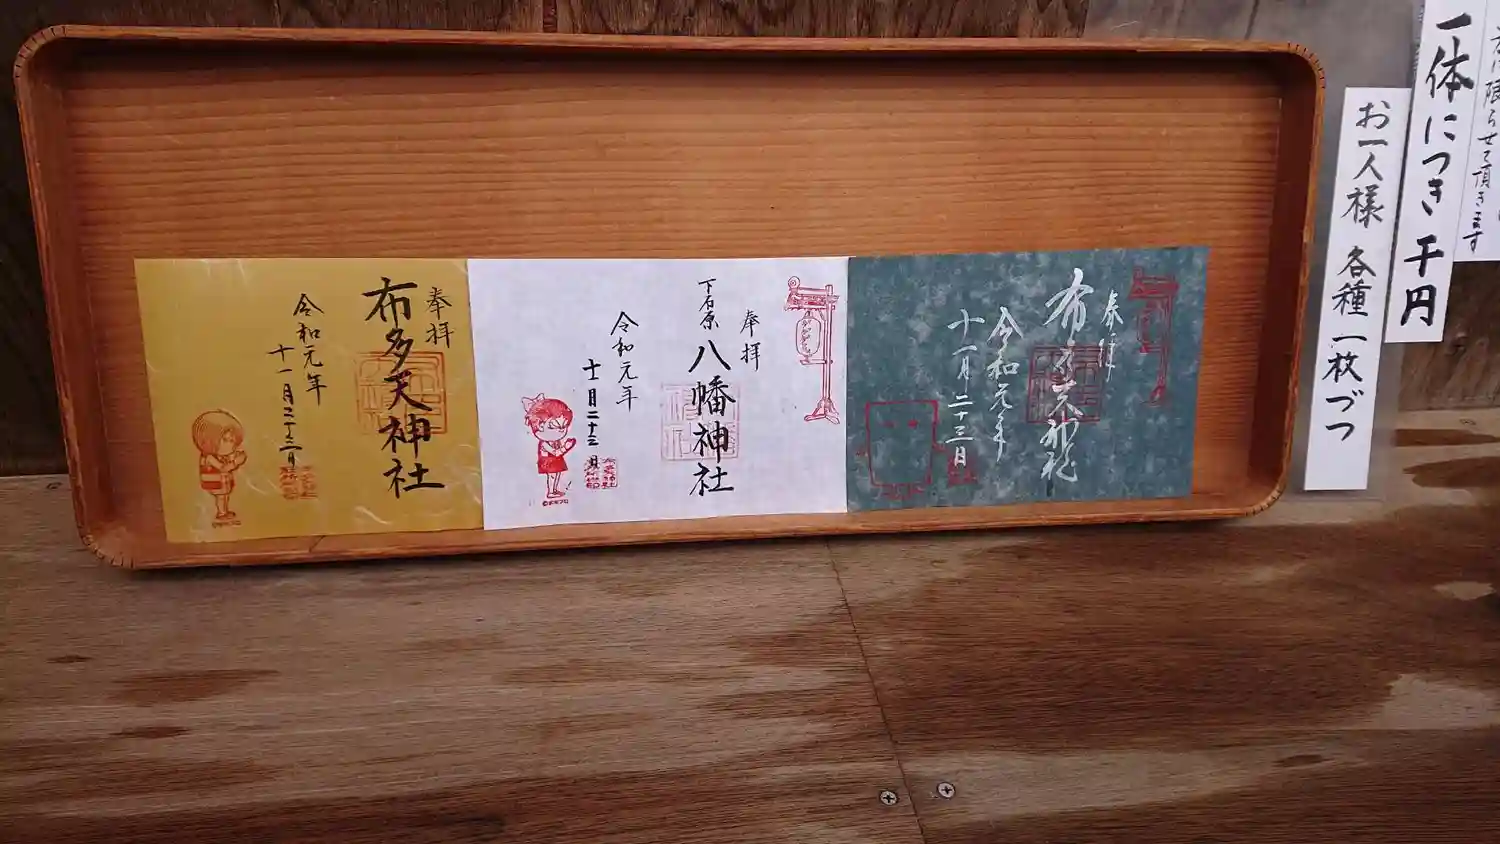 限らせて頂きます
一体につき 千円
お一人様 各種 一枚づつ
奉拝
布多天神社
令和元年
十一月二十三日
奉拝
下石原 八幡神社
令和元年
十一月二十三日
奉拝
布多天神社
令和元年
十一月二十三日